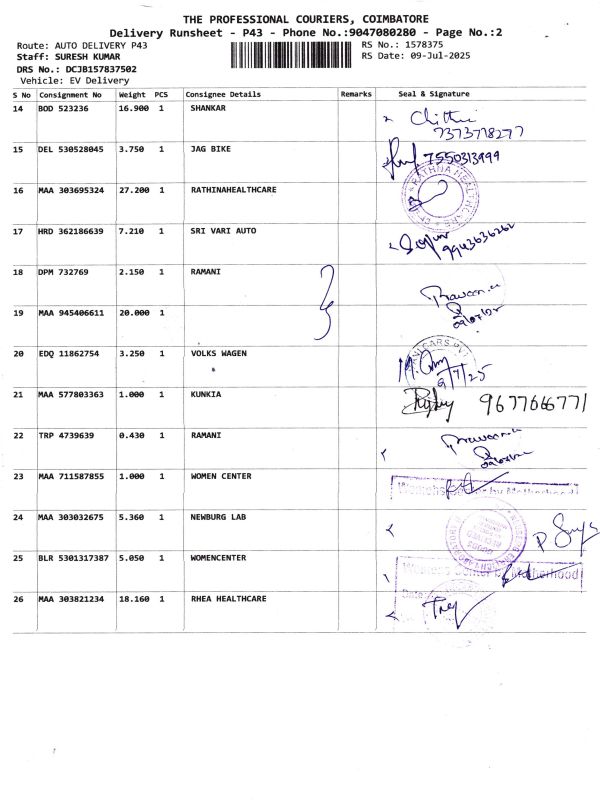 THE PROFESSIONAL COURIERS, COIMBATORE
Delivery Runsheet - P43 - Phone No.:9047080280 - Page No.:2
Route: AUTO DELIVERY P43
RS No.: 1578375
Staff: SURESH KUMAR
RS Date: 09-Jul-2025
DRS No.: DCJB157837502
Vehicle: EV Delivery
S No Consignment No Weight PCS Consignee Details Remarks Seal & Signature
14 BOD 523236 16.900 1 SHANKAR
7373778277
15 DEL 530528045 3.750 1 JAG BIKE
7550313999
16 MAA 303695324 27.200 1 RATHINAHEALTHCARE
17 HRD 362186639 7.210 1 SRI VARI AUTO
9943636262
18 DPM 732769 2.150 1 RAMANI
19 MAA 945406611 20.000 1
20 EDQ 11862754 3.250 1 VOLKS WAGEN
9/7/25
21 MAA 577803363 1.000 1 KUNKIA
9677666771
22 TRP 4739639 0.430 1 RAMANI
23 MAA 711587855 1.000 1 WOMEN CENTER
24 MAA 303032675 5.360 1 NEWBURG LAB
25 BLR 5301317387 5.050 1 WOMENCENTER
26 MAA 303821234 18.160 1 RHEA HEALTHCARE